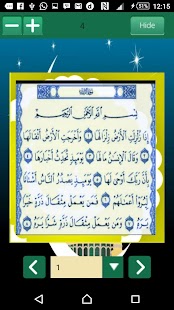 51% 12:15
4 Hide
بِسْمِ اللَّهِ الرَّحْمَٰنِ الرَّحِيمِ
إِذَا زُلْزِلَتِ الْأَرْضُ زِلْزَالَهَا ﴿١﴾ وَأَخْرَجَتِ الْأَرْضُ أَثْقَالَهَا
﴿٢﴾ وَقَالَ الْإِنْسَانُ مَا لَهَا ﴿٣﴾ يَوْمَئِذٍ تُحَدِّثُ أَخْبَارَهَا ﴿٤﴾
بِأَنَّ رَبَّكَ أَوْحَىٰ لَهَا ﴿٥﴾ يَوْمَئِذٍ يَصْدُرُ النَّاسُ أَشْتَاتًا
لِيُرَوْا أَعْمَالَهُمْ ﴿٦﴾ فَمَنْ يَعْمَلْ مِثْقَالَ ذَرَّةٍ خَيْرًا يَرَهُ
﴿٧﴾ وَمَنْ يَعْمَلْ مِثْقَالَ ذَرَّةٍ شَرًّا يَرَهُ ﴿٨﴾
1